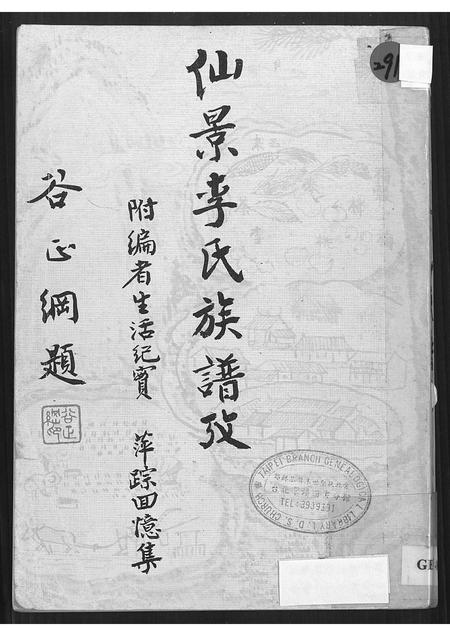 仙景李氏族譜攷
附編者生活紀實 萍踪回憶集
谷正綱題
291
TAIPEI BRANCH GENEALOGICAL LIBRARY L.D.S. CHURCH
TEL:3939331